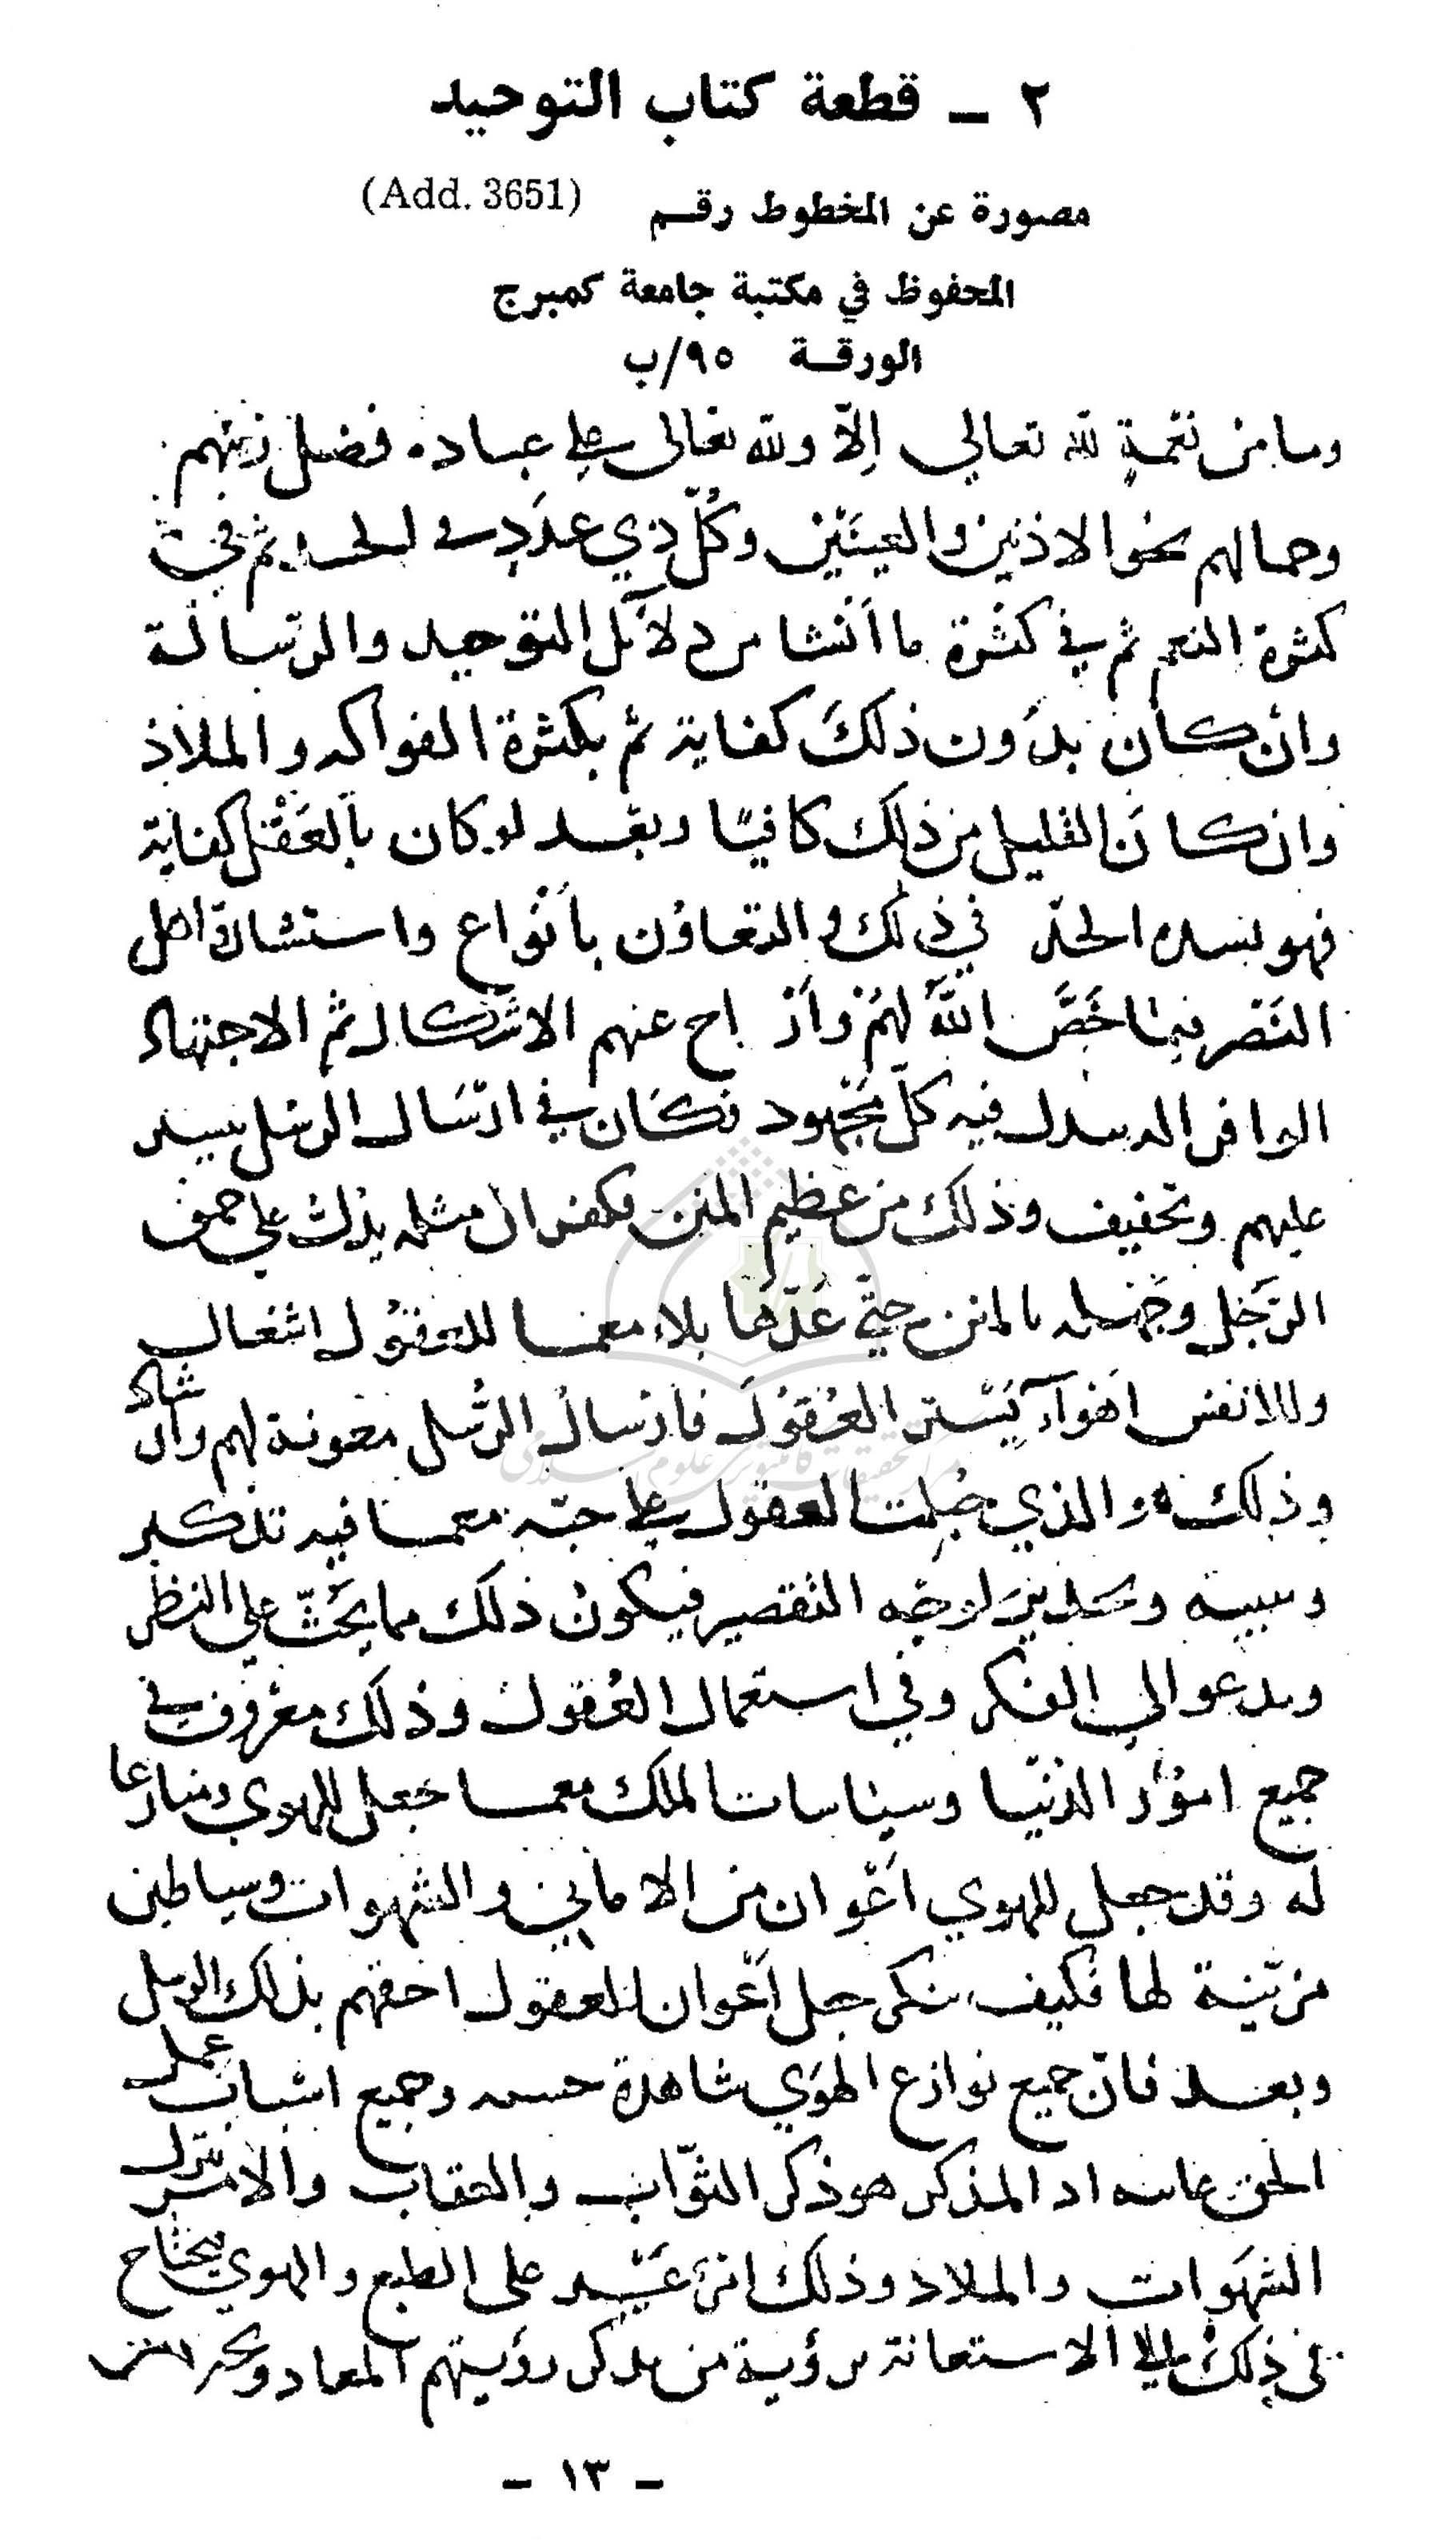 ٢ ــ قطعة كتاب التوحيد
مصورة عن المخطوط رقم (Add. 3651)
المحفوظ في مكتبة جامعة كمبرج
الورقة ٩٥/ب
وما من نعمةٍ لله تعالي إلّا ولله تعالى على عباده فضل زينهم
وجمالهم نحو الاذنين والعينَيْن وكُلّ ذي عدَدٍ في الجسد ثم في
كثرة النعم ثم في كثرة ما أنشا من دلآئل التوحيد والرّسالة
وأن كان بدَون ذلكَ كفاية ثم بكثرة الفواكه والملاذ
وان كانَ القليل من ذلك كافيًا وبعْد لو كان بالعَقْل كفاية
فهو الحدّ في ذلك والتعاوُن بأنْواع واستشارة اهل
النَصْر فيما خَصَّ اللهُ لهُمْ وأزاح عنهم الاشكال ثم الاجتهاد
الوافر فيه كلّ مجْهود فكَان في ارْسَال الرسل تيسير
عليهم وتخفيف وذلك من عظيم المنن فكفران مثله يدُلّ على حمق
الرّجُل وجَهْله بالمنن حتّي عَدّهَا بلاء معما للعقوُل اشغال
وللانفس اهْوآء تَسْتر العُقوُلَ فأرْسالُ الرُسل معونة لهم وآن شاء
وذلك هو الذي جُبِلت العقول على حبّه معما فيه تذكير
وتنبيه وتحذير لوجْه التقصير فيكون ذلك مما يحُثّ على النظر
ويدعو الي الفكر وفي استعمال العُقول وذلك معْروف في
جميع امُوْر الدنْيا وسياسات الملك معما جعل للهوي منازعا
له وقد جعل للهوي أعْوان من الاماني والشهوات وشياطين
مزيّنة لها فكيف ينكر جعل أعْوان للعقول احقهم بذلك الرسل
وبعد فانّ جميع نوازع الهوَي شاهدة وجميع اسْباب عمل
الحق المذكر هو ذكر الثوّاب والعقاب والامر بترك
الشهَوات والملاذ وذلك امْر عَسِير على الطبع والهوي فيحتاج
في ذلك إلى الاستعانة رؤية من يذكر رؤيتهم المعاد
- ١٣ -